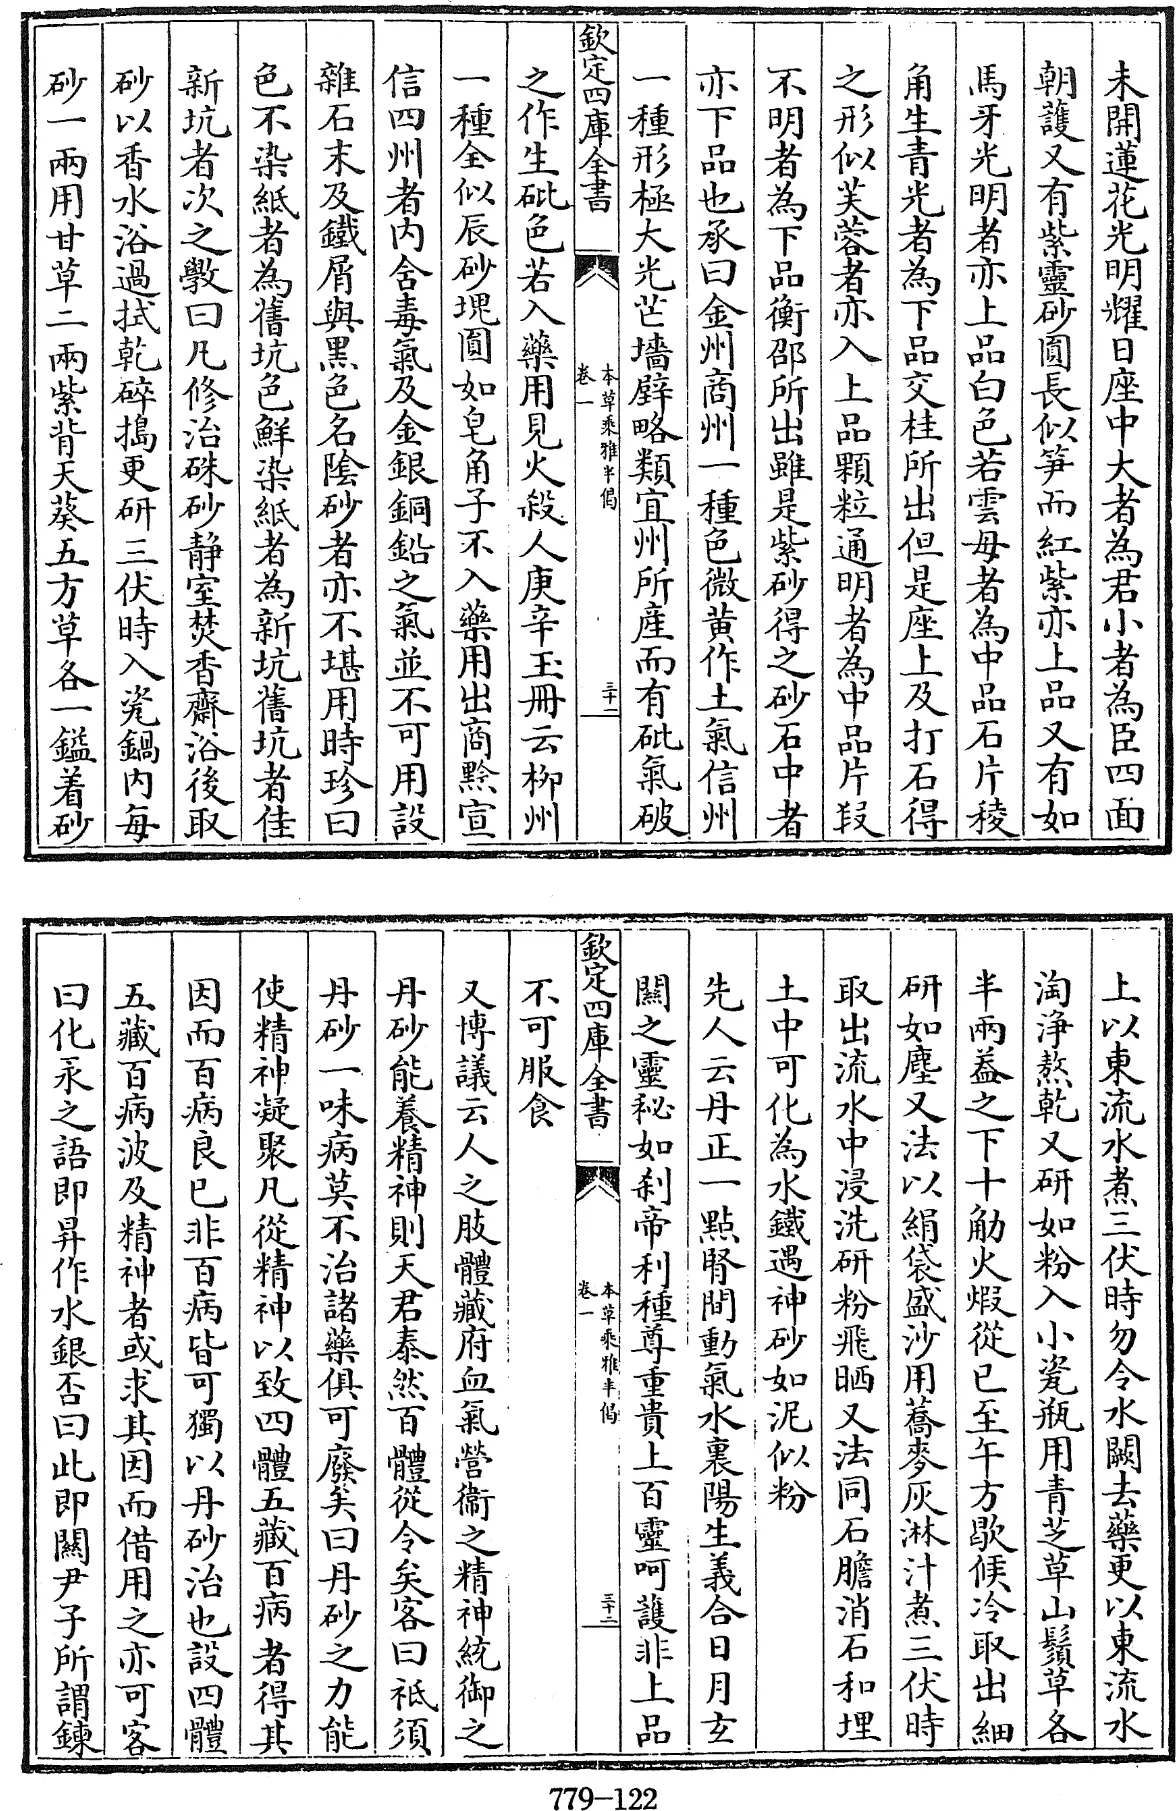 未開蓮花光明耀日座中大者為君小者為臣四面
朝護又有紫靈砂圓長似笋而紅紫亦上品又有如
馬牙光明者亦上品白色若雲母者為中品石片稜
角生青光者為下品交桂所出但是座上及打石得
之形似芙蓉者亦入上品顆粒通明者為中品片段
不明者為下品衡邵所出雖是紫砂得之砂石中者
亦下品也承曰金州商州一種色微黄作土氣信州
一種形極大光芒墻壁略類宜州所産而有砒氣破
欽定四庫全書
本草乘雅半偈
卷一
三十二
之作生砒色若入藥用見火殺人庚辛玉冊云柳州
一種全似辰砂塊圓如皂角子不入藥用出商黔宣
信四州者内含毒氣及金銀銅鉛之氣並不可用設
雜石末及鐵屑與黒色名隂砂者亦不堪用時珍曰
色不染紙者為舊坑色鮮染紙者為新坑舊坑者佳
新坑者次之斆曰凡修治硃砂静室焚香齋浴後取
砂以香水浴過拭乾碎搗更研三伏時入瓷鍋内每
砂一兩用甘草二兩紫背天葵五方草各一鎰着砂
上以東流水煮三伏時勿令水闕去藥更以東流水
淘浄熬乾又研如粉入小瓷瓶用青芝草山鬚草各
半兩葢之下十觔火煆從巳至午方歇候冷取出細
研如塵又法以絹袋盛沙用蕎麥灰淋汁煮三伏時
取出流水中浸洗研粉飛晒又法同石膽消石和埋
土中可化為水鐵遇神砂如泥似粉
先人云丹正一點腎間動氣水裏陽生義合日月玄
關之靈秘如刹帝利種尊重貴上百靈呵護非上品
欽定四庫全書
本草乘雅半偈
卷一
三十二
不可服食
又博議云人之肢體藏府血氣營衞之精神統御之
丹砂能養精神則天君泰然百體從令矣客曰祗須
丹砂一味病莫不治諸藥俱可廢矣曰丹砂之力能
使精神凝聚凡從精神以致四體五藏百病者得其
因而百病良已非百病皆可獨以丹砂治也設四體
五藏百病波及精神者或求其因而借用之亦可客
曰化汞之語即昇作水銀否曰此即關尹子所謂鍊
779-122